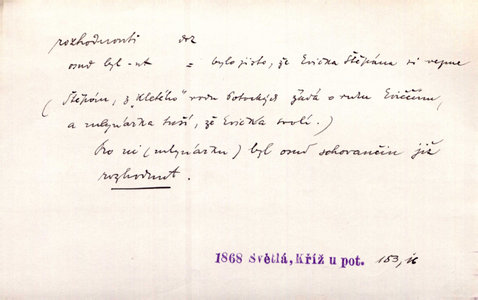 rozhodnouti dok
osud byl -ut = bylo jisto, že Evička Štěpána si vezme
(Štěpán, z "kletého" rodu Potockých žádá o ruku Eviččinu,
a mlynářka tuší, že Evička svolí.)
Pro ni (mlynářku) byl osud schovančin již
rozhodnut.
1868 Světlá, Kříž u pot. 153,